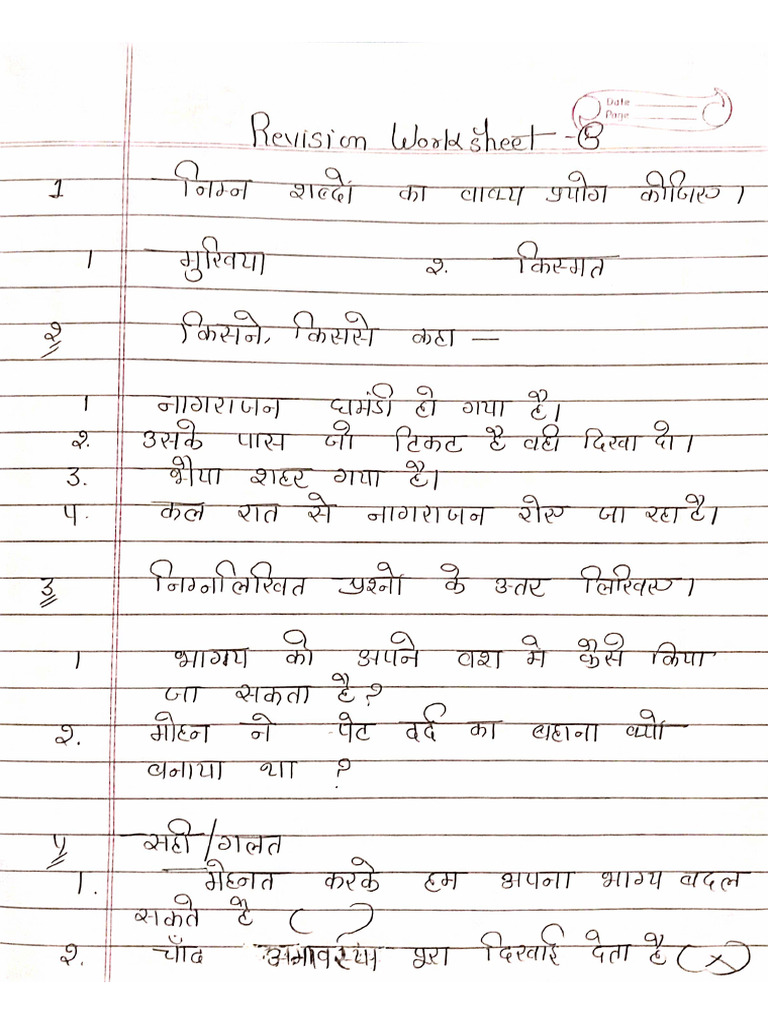 Date
Page
Revision Worksheet - 6
1 निम्न शब्दों का वाक्य प्रयोग कीजिए।
1 मुखिया २. किस्मत
२ किसने, किससे कहा —
1 नागराजन घमंडी हो गया है।
२. उसके पास जो टिकट है वही दिखा दो।
3. भैया शहर गया है।
4. कल रात से नागराजन रोए जा रहा है।
3 निम्नलिखित प्रश्नों के उत्तर लिखिए।
1 भागय को अपने वश मे कैसे किया
जा सकता है?
२. मोहन ने पेट दर्द का बहाना क्यों
बनाया था ?
4 सही/गलत
1. मेहनत करके हम अपना भाग्य बदल
सकते है ( )
२. चाँद अमावस्या पूरा दिखाई देता है (×)